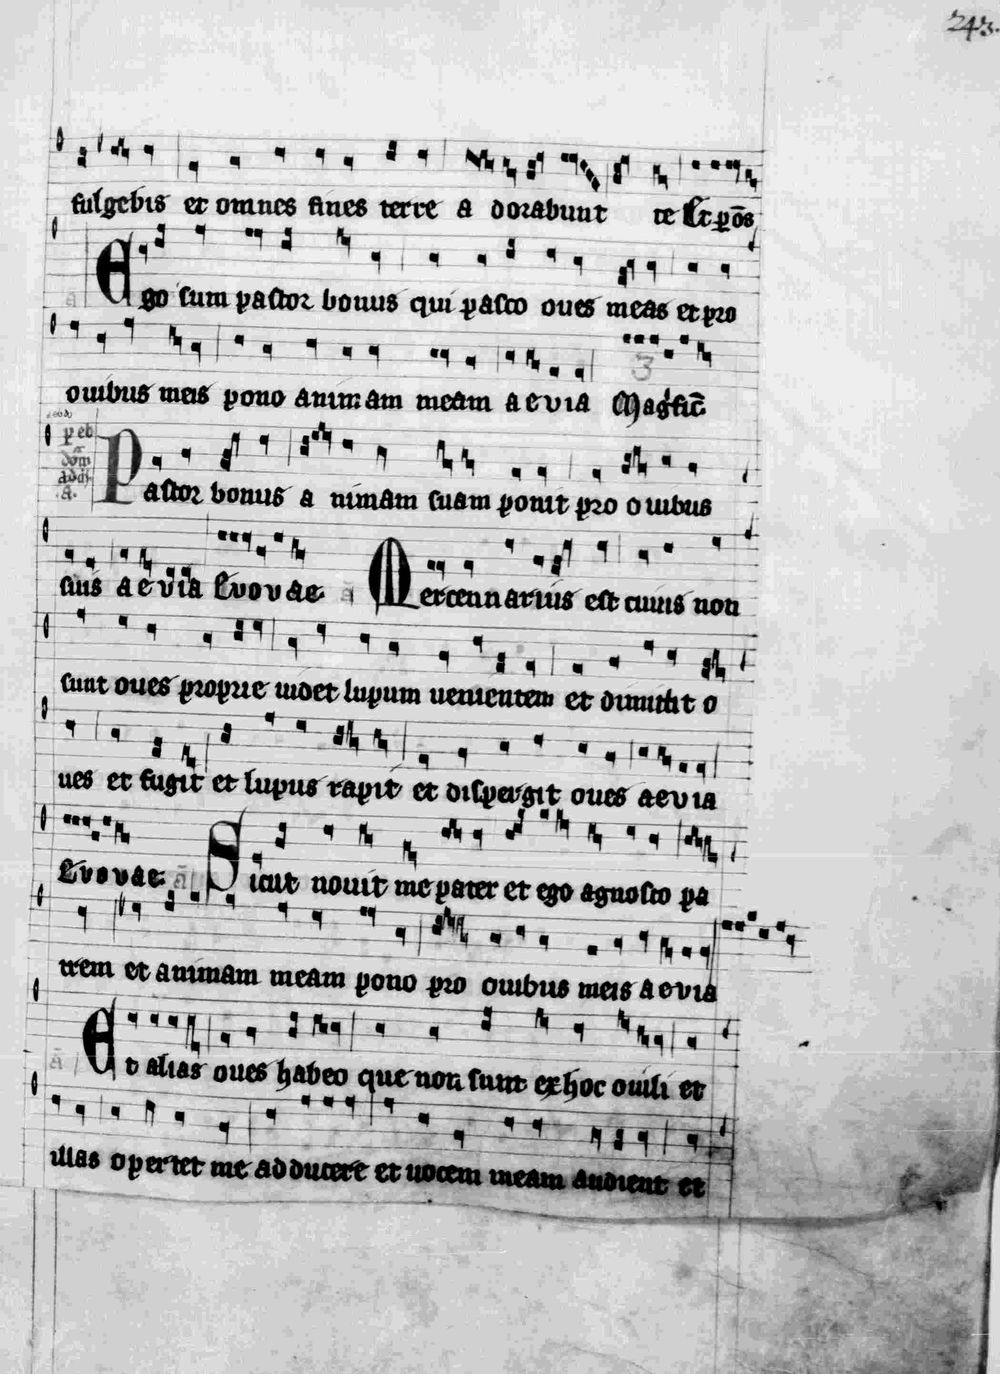 243.
fulgebis et omnes fines terre a dorabunt te Et p̱os̄
Ego sum pastor bonus qui pasco oues meas et pro
ouibus meis pono animam meam aevia Magfic̄
Pastor bonus a nimam suam ponit pro ouibus
suis aevia Evovae Mercennarius est cuius non
sunt oues proprie uidet lupum uenientem et dimittit o
ues et fugit et lupus rapit et dispergit oues aevia
Evovae Sicut novit me pater et ego agnosco pa
trem et animam meam pono pro ouibus meis aevia
Et alias oues habeo que non sunt ex hoc ouili et
illas opertet me adducere et uocem meam audient et